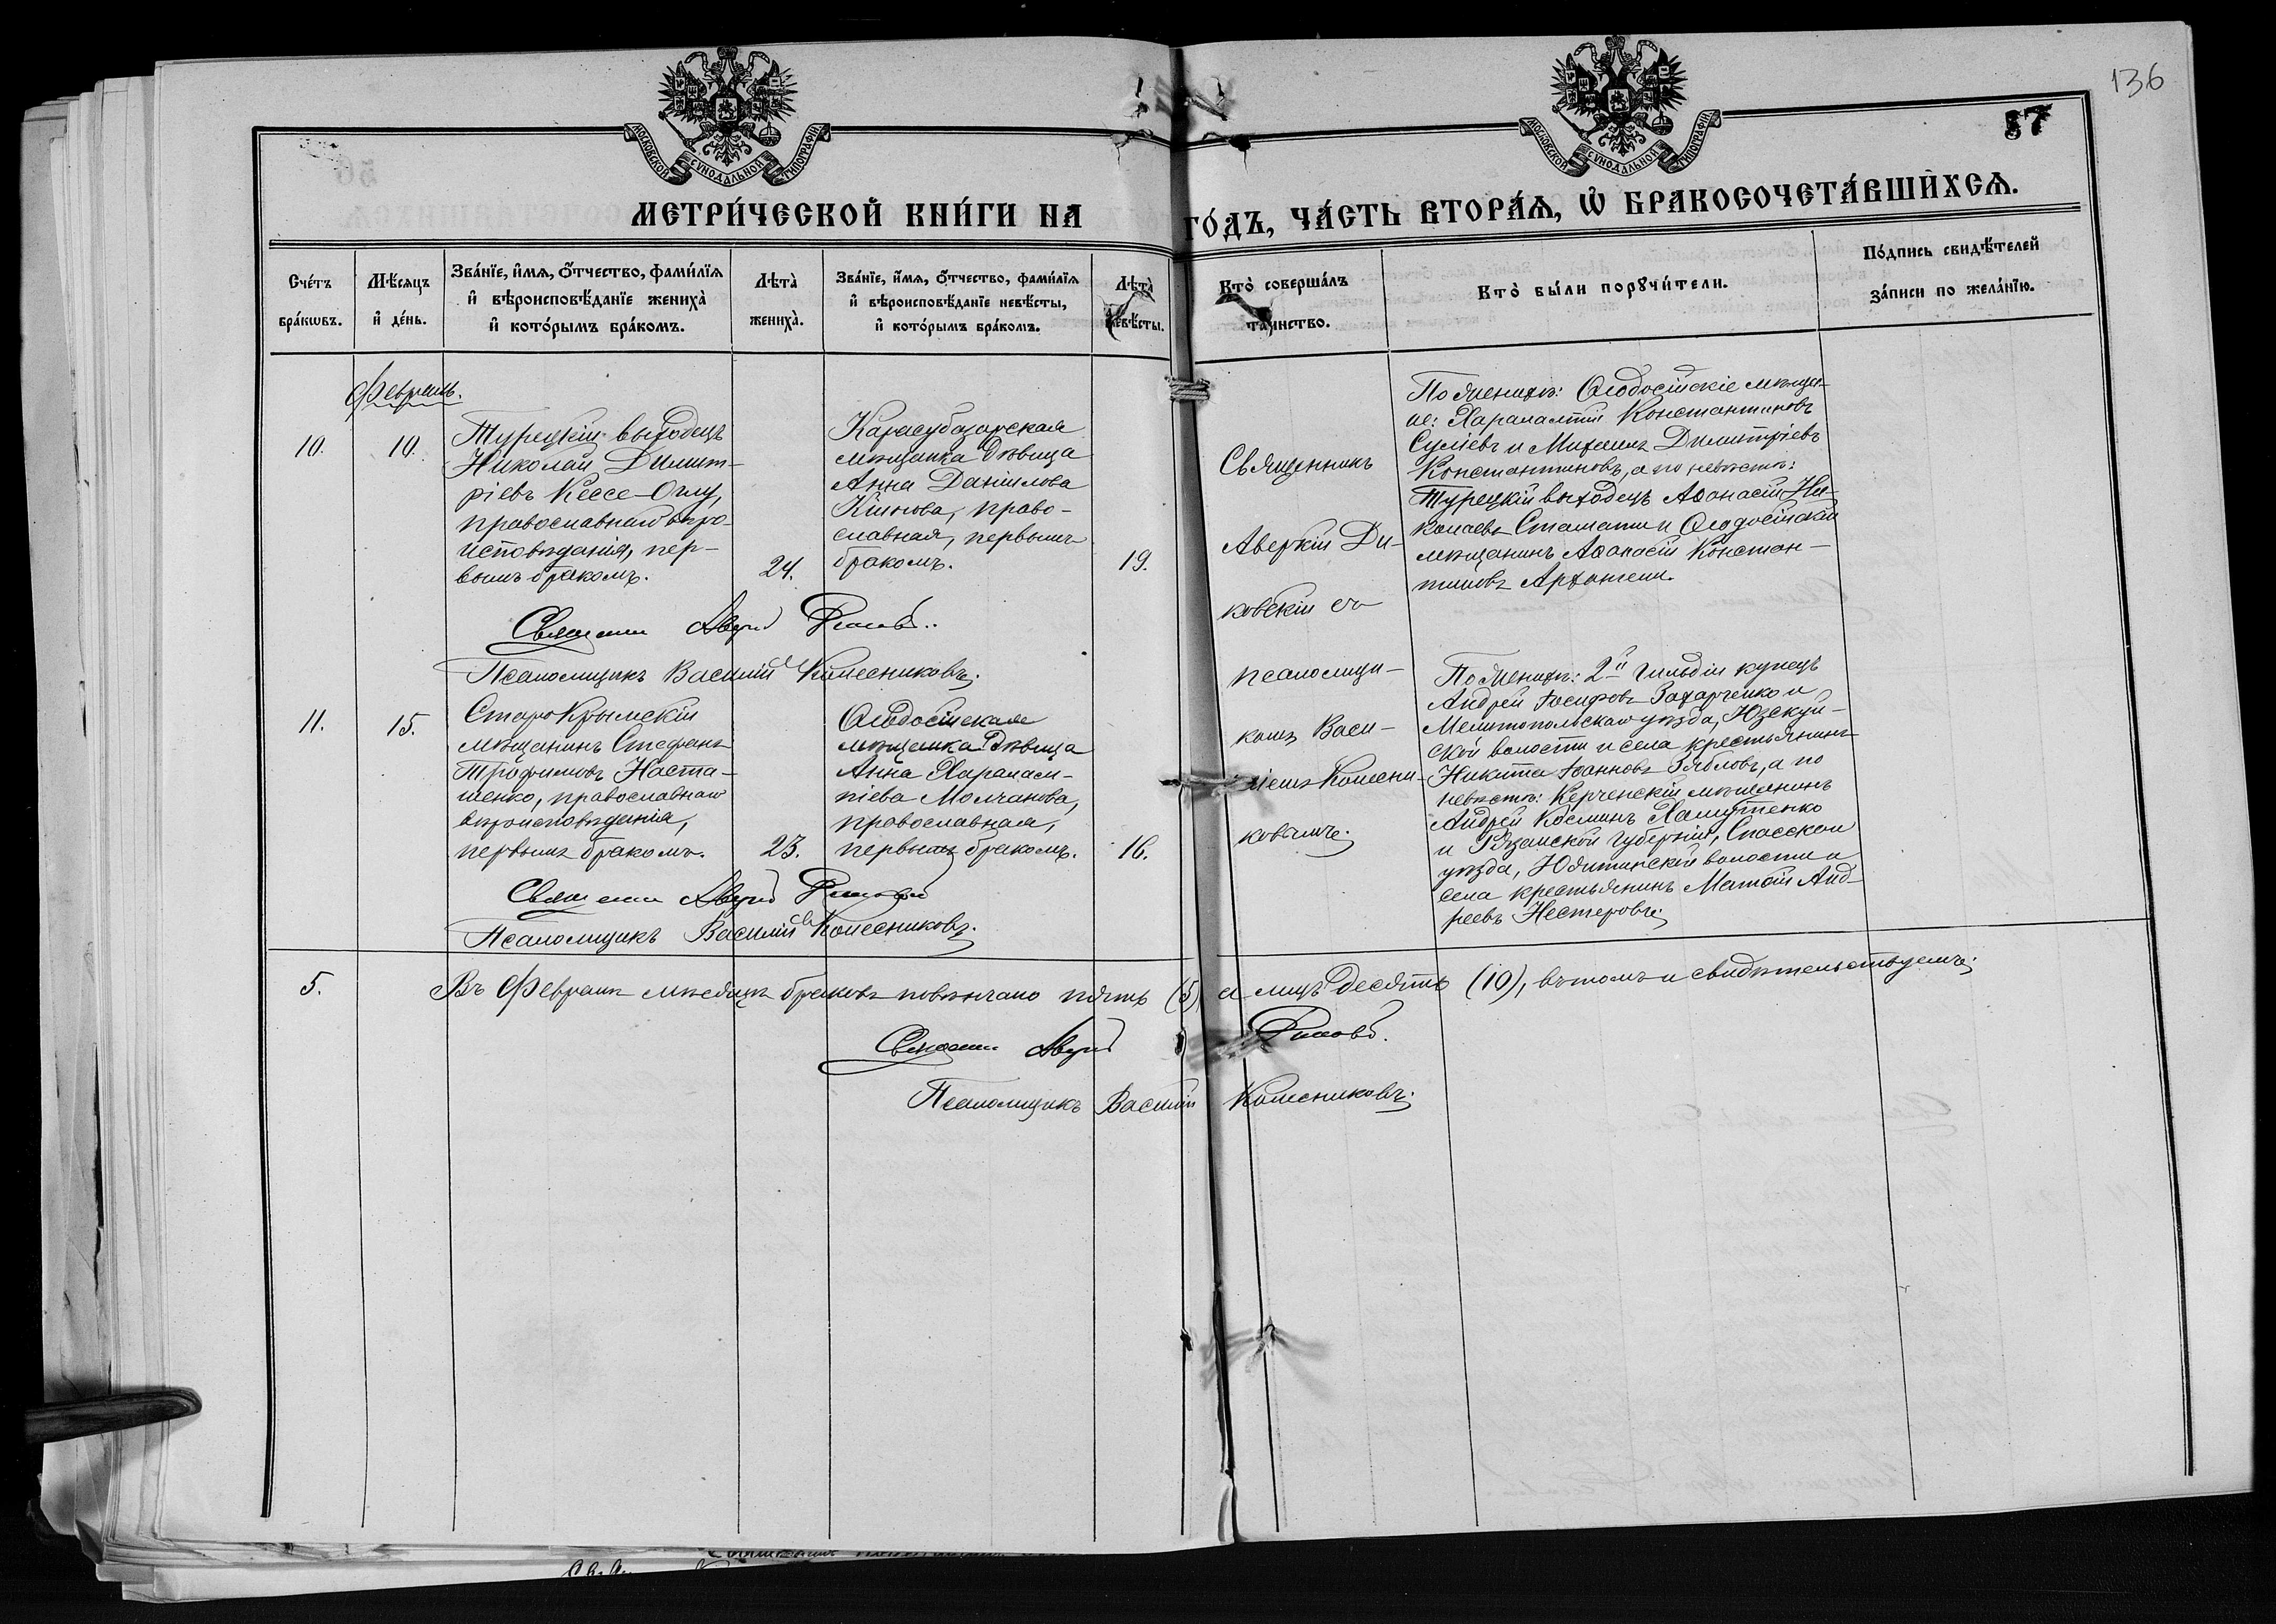 136
87
МОСКОВСКОЙ СѴНОДАЛЬНОЙ ТИПОГРАФІИ
МОСКОВСКОЙ СѴНОДАЛЬНОЙ ТИПОГРАФІИ
МЕТРИ́ЧЕСКОЙ КНИ́ГИ НА ГО́ДЪ, ЧА́СТЬ ВТОРА́Я, Ѡ БРАКОСОЧЕТА́ВШИХСЯ.
Сче́тъ
бра́кѡвъ.
Мѣ́сяцъ
и҆ де́нь.
Зва́нїе, и҆́мя, ѻ҆́тчество, фами́лїя
и҆ вѣроисповѣ́данїе жениха̀
и҆ кото́рымъ бра́комъ.
Лѣта̀
жениха̀.
Зва́нїе, и҆́мя, ѻ҆́тчество, фами́лїя
и҆ вѣроисповѣ́данїе невѣ́сты,
и҆ кото́рымъ бра́комъ.
Лѣта̀
невѣ́сты.
Кто̀ соверша́лъ
та́инство.
Кто̀ бы́ли порꙋчи́тели.
По́дпись свидѣ́телей
за́писи по жела́нїю.
Февраль.
10.
10.
Турецкій выходецъ
Николай Димит-
ріевъ Кессе-Оглу,
православнаго вѣро-
исповѣданія, пер-
вымъ бракомъ.
24.
Карасубазарская
мѣщанка дѣвица
Анна Даніилова
право-
славная, первымъ
бракомъ.
19.
Священникъ
Аверкій Ди-
ковскій съ
псаломщи-
комъ Васи-
ліемъ Колесни-
ковымъ.
По женихѣ: Ѳеодосійскіе мѣща-
не: Харалампій Константиновъ
Суліевъ и Михаилъ Димитріевъ
Константиновъ, а по невѣстѣ:
Турецкій выходецъ Аѳанасій Ни-
колаевъ Стамати и Ѳеодосійскій
мѣщанинъ Аѳанасій Констан-
тиновъ Архангели.
Псаломщикъ Василій Колесниковъ.
11.
15.
СтароКрымскій
мѣщанинъ Стефанъ
Трофимовъ Наста-
шенко, православнаго
вѣроисповѣданія,
первымъ бракомъ.
23.
Ѳеодосійская
мѣщанка дѣвица
Анна Харалам-
піева Молчанова,
православная,
первымъ бракомъ.
16.
По женихѣ: 2й гильдіи купецъ
Андрей Іосифовъ Захарченко и
Мелитопольскаго уѣзда, Юзкуй-
ской волости и села крестьянинъ
Никита Іоанновъ Зябловъ, а по
невѣстѣ: Керченскій мѣщанинъ
Андрей Косминъ
и Рязанской губерніи, Спасскаго
уѣзда, волости и
села крестьянинъ Матѳій Анд-
реевъ Нестеровъ.
Псаломщикъ Василій Колесниковъ.
5.
Въ Февралѣ мѣсяцѣ браковъ повѣнчано пять (5) а лицъ десять (10), въ томъ и свидѣтельствуемъ:
Псаломщикъ Василій Колесниковъ.